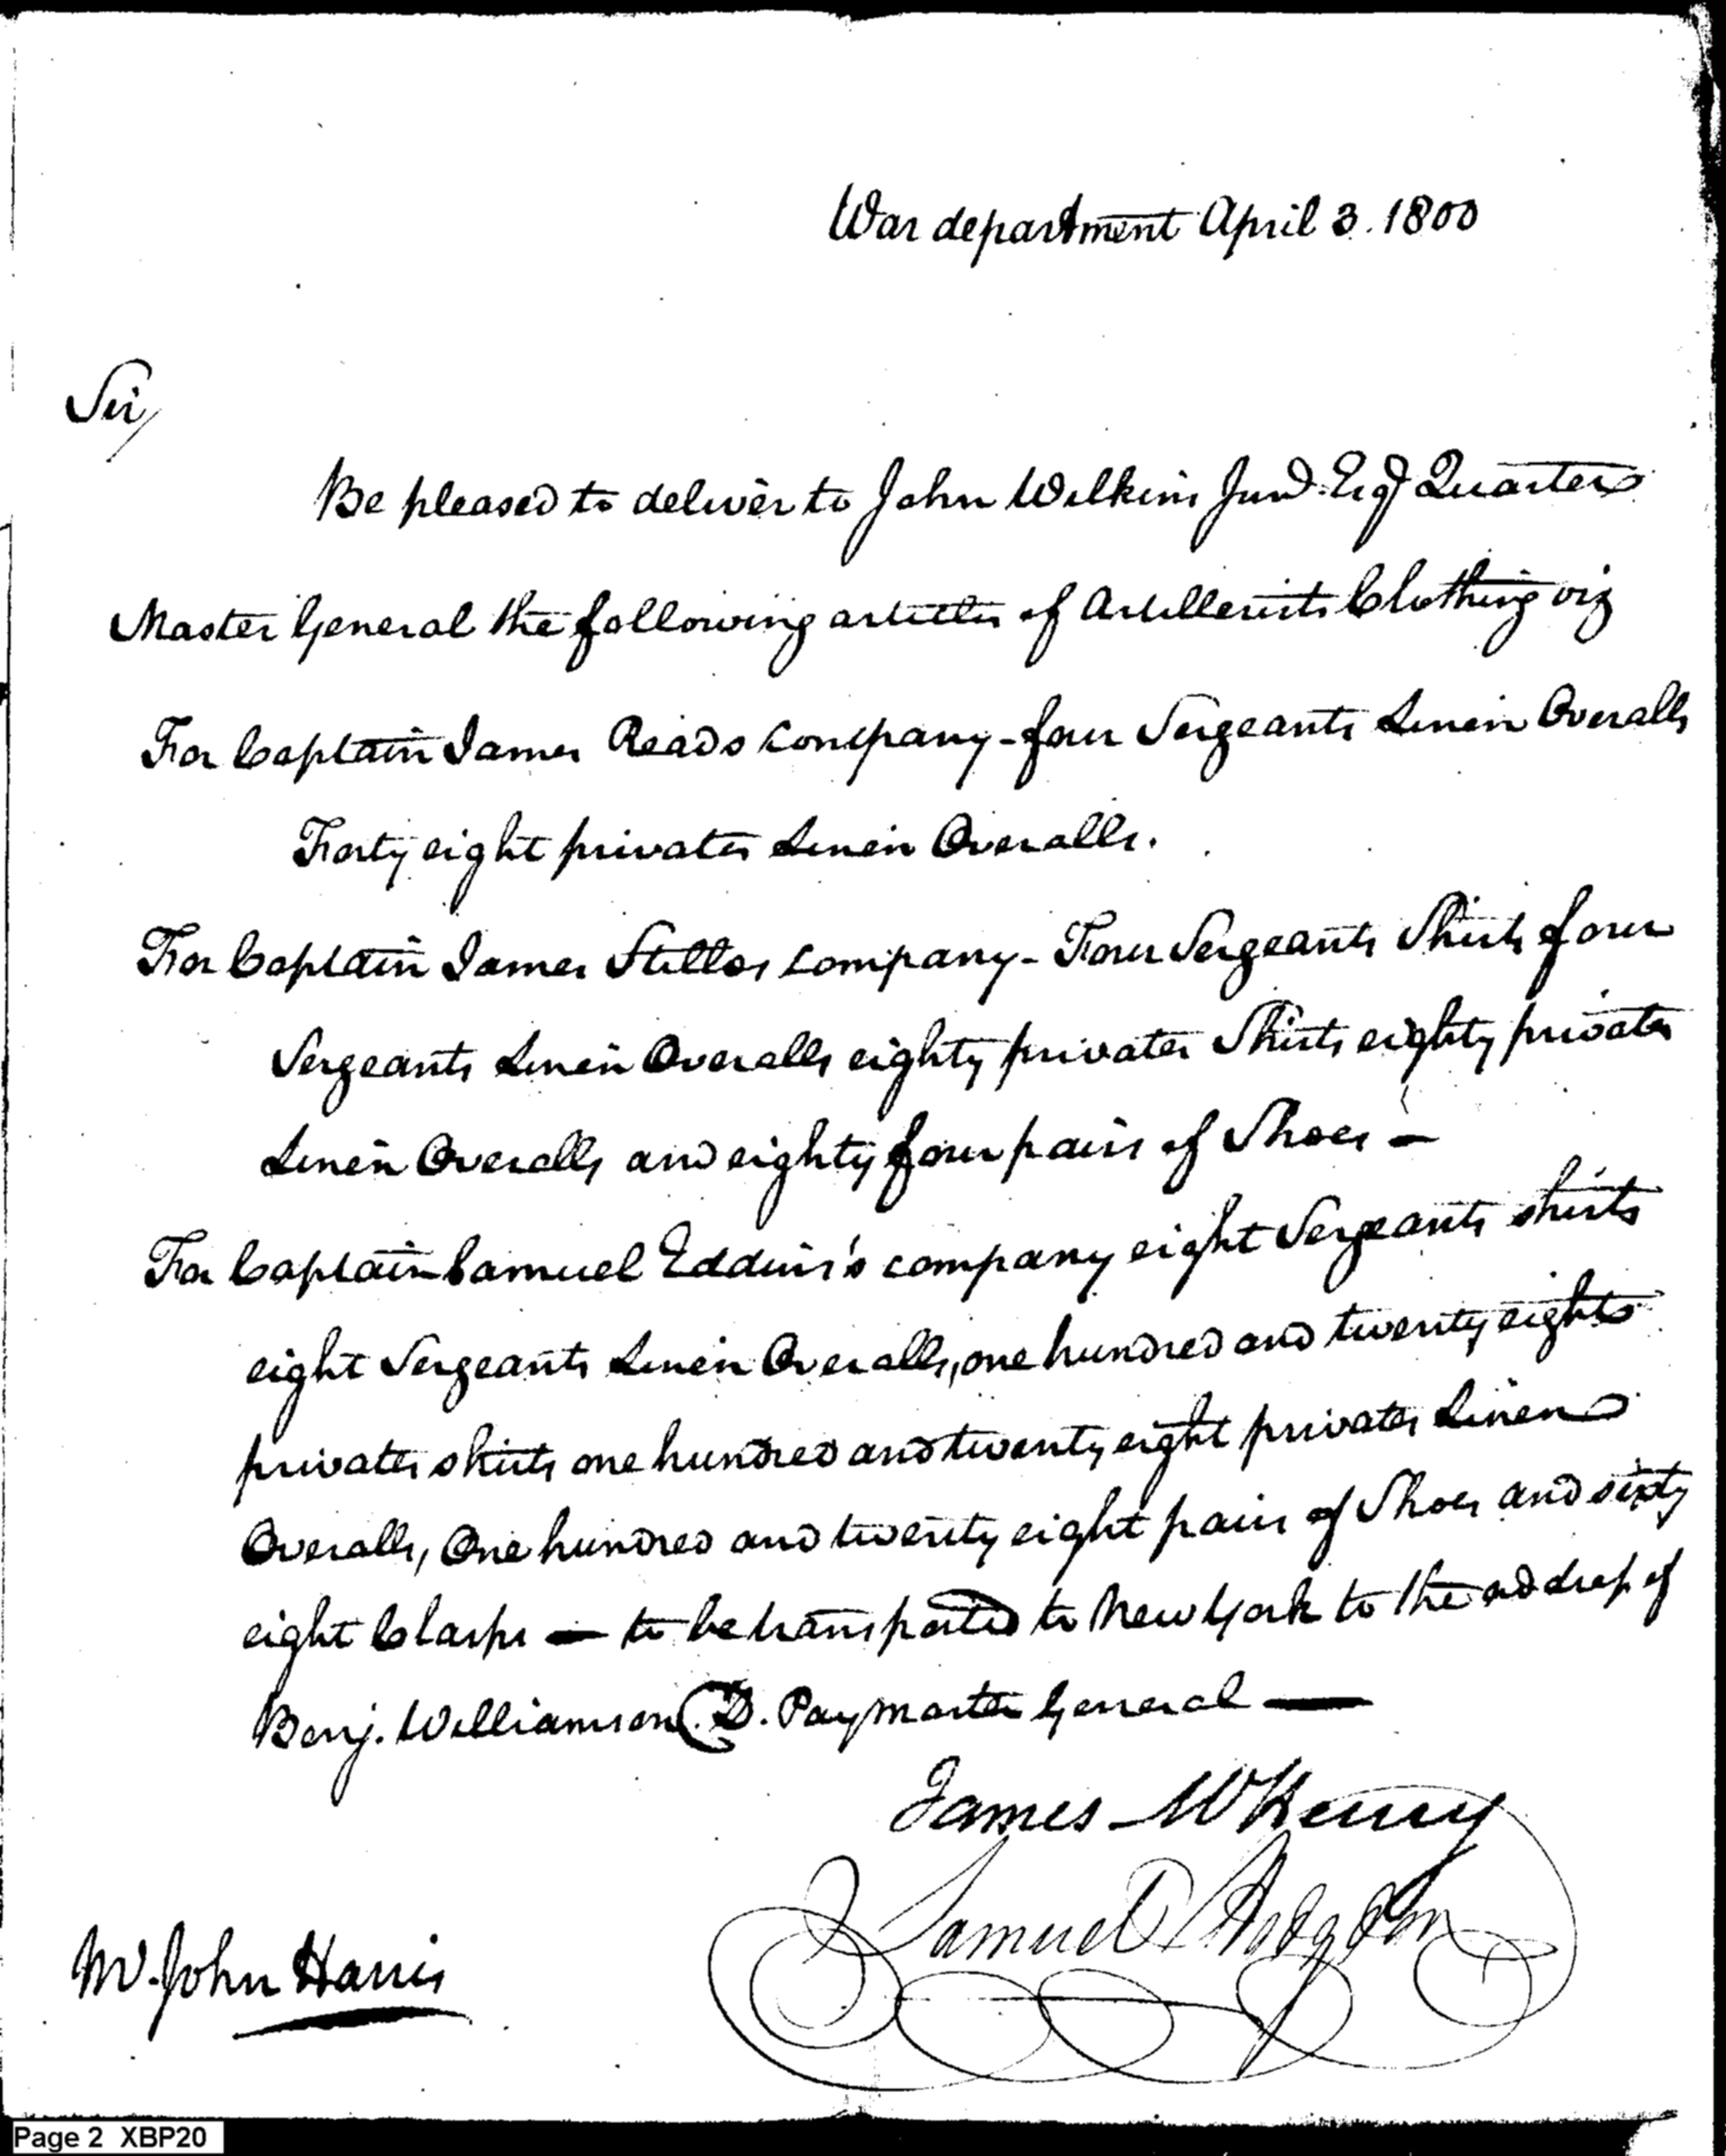 War department April 3. 1800
Sir,
Be pleased to deliver to John Wilkins Junr. Esqr Quarter
Master General the following articles of Artillerists Clothing viz
For Captain James Reads company - four Sergeants Linen Overalls
Forty eight privates Linen Overalls.
For Captain James Stilles company - Four Sergeants Shirts four
Sergeants Linen Overalls eighty privates Shirts eighty privates
Linen Overalls and eighty four pairs of Shoes —
For Captain Samuel Eddins's company eight Sergeants shirts
eight Sergeants Linen Overalls, one hundred and twenty eight
privates shirts one hundred and twenty eight privates Linen
Overalls, One hundred and twenty eight pairs of Shoes and sixty
eight Clasps — to be transported to New York to the address of
Benj. Williamson. D. Paymaster General —
James McHenry
Samuel Hodgdon
Mr. John Harris
Page 2 XBP20